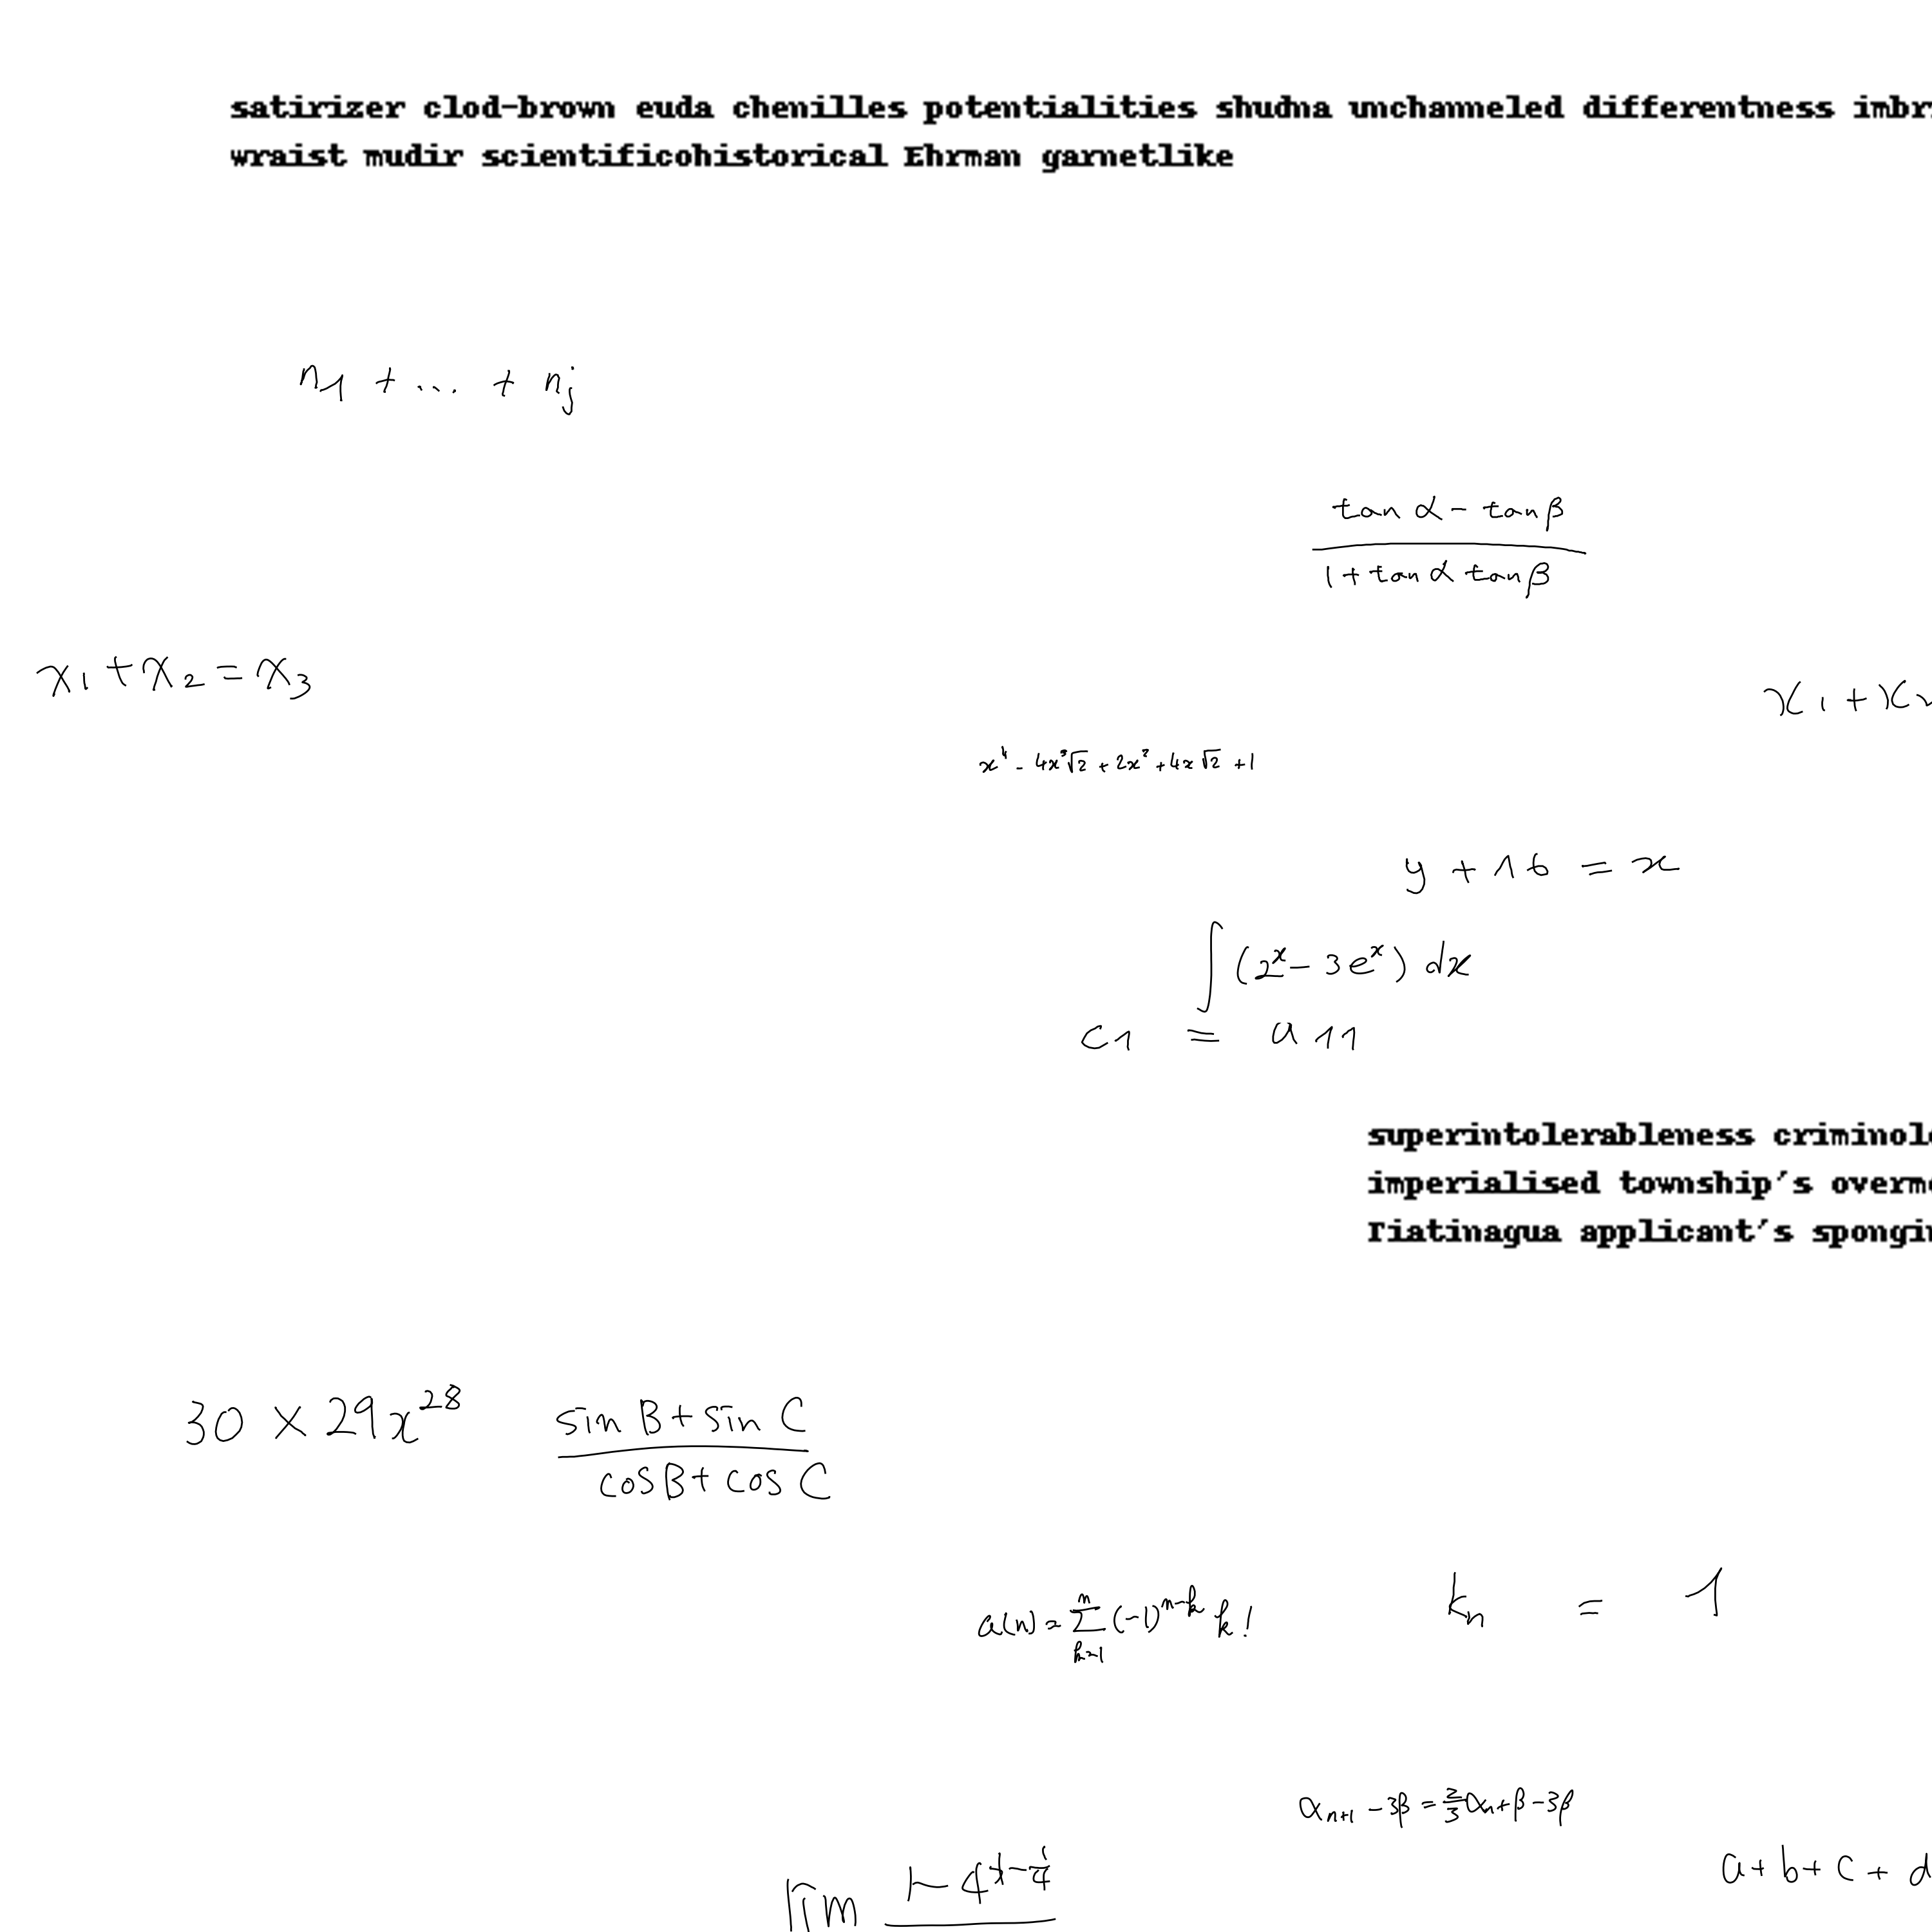 satirizer clod-brown euda chenilles potentialities shudna unchanneled differentness
wraist mudir scientificohistorical Ehrman garnetlike
n_1 + ... + n_j
\frac{tan α - tan β}{1 + tan α tan β}
x_1 + x_2 = x_3
x_1 + x
x^4 - 4x^3√2 + 2x^2 + 4x√2 + 1
y + 16 = x
∫(2^x - 3e^x) dx
c_1 = a_{11}
superintolerableness
imperialised township's
Tiatinagua applicant's
30 × 29x^{28}
\frac{sin B + sin C}{cos B + cos C}
a(n) = \sum_{k=1}^{n} (-1)^{n-k} k!
k_n = 1
α_{n+1} - 3β = \frac{2}{3}α_n + β - 3β
a + b + c + d
lim